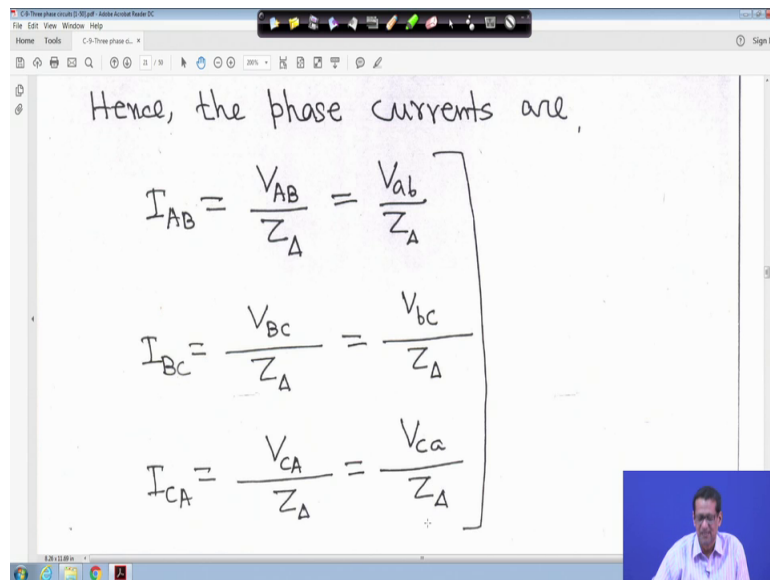 C-9-Three phase circuits [1-50].pdf - Adobe Acrobat Reader DC
File Edit View Window Help
Home Tools C-9-Three phase ci... × Sign
21 / 50 200%
Hence, the phase currents are,
I_AB = V_AB / Z_Δ = V_ab / Z_Δ
I_BC = V_BC / Z_Δ = V_bc / Z_Δ
I_CA = V_CA / Z_Δ = V_ca / Z_Δ
8.26 x 11.69 in